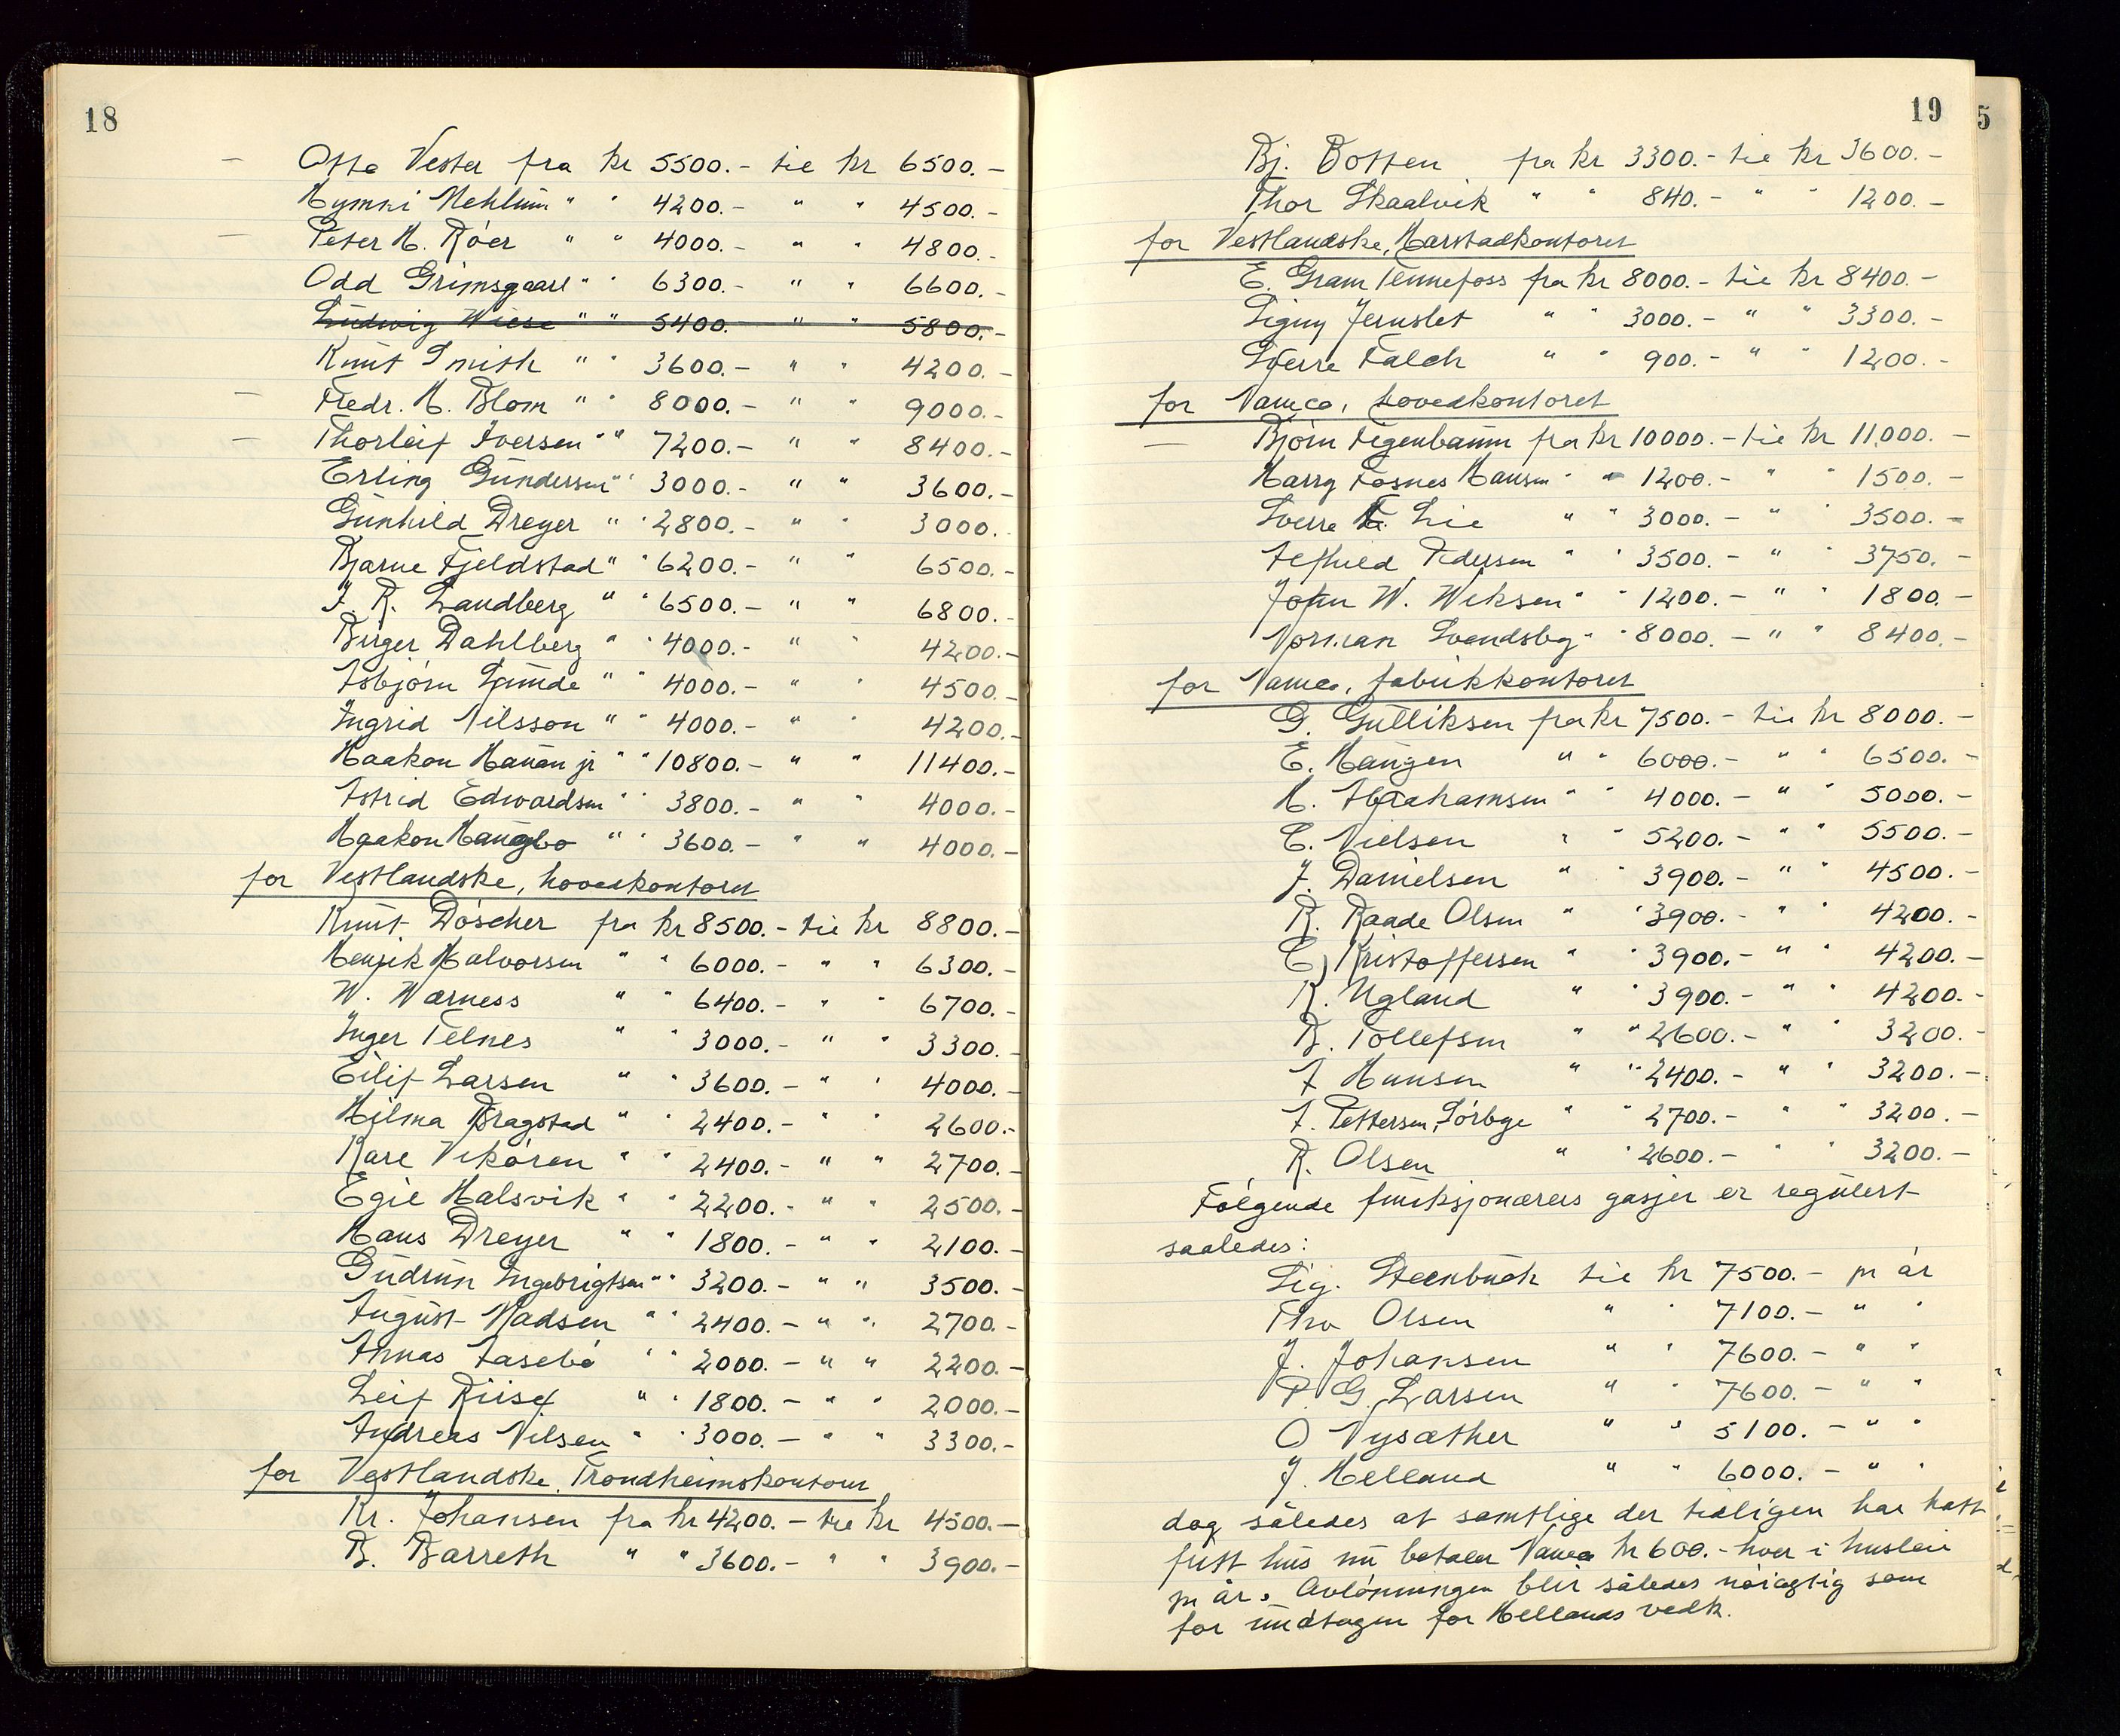 18
— Otto Vester fra kr 5500.- til kr 6500.-
Hymki Mehlum " " 4200.- " " 4500.-
— Peter H. Röer " " 4000.- " " 4800.-
Odd Grimsgaard " " 6300.- " " 6600.-
Ludwig Wiese " " 5400.- " " 5800.-
Knut Smith " " 3600.- " " 4200.-
— Fredr. H. Blom " " 8000.- " " 9000.-
— Thorleif Iversen " " 7200.- " " 8400.-
Erling Gundersen " " 3000.- " " 3600.-
Gunhild Dreyer " " 2800.- " " 3000.-
Bjarne Fjeldstad " " 6200.- " " 6500.-
J. R. Landberg " " 6500.- " " 6800.-
Birger Dahlberg " " 4000.- " " 4200.-
Asbjörn Lunde " " 4000.- " " 4500.-
Ingrid Nilsson " " 4000.- " " 4200.-
Haakon Hauan jr " " 10800.- " " 11400.-
Astrid Edwardsen " " 3800.- " " 4000.-
Haakon Haugbo " " 3600.- " " 4000.-
for Vestlandske, hovedkontoret
Knut Döscher fra kr 8500.- til kr 8800.-
Henrik Halvorsen " " 6000.- " " 6300.-
W. Wærness " " 6400.- " " 6700.-
Inger Telnes " " 3000.- " " 3300.-
Eilif Larsen " " 3600.- " " 4000.-
Hilma Bragstad " " 2400.- " " 2600.-
Kare Vikören " " 2400.- " " 2700.-
Egil Halsvik " " 2200.- " " 2500.-
Hans Dreyer " " 1800.- " " 2100.-
Gudrun Ingebrigtsen " " 3200.- " " 3500.-
August Madsen " " 2400.- " " 2700.-
Annas Aasebö " " 2000.- " " 2200.-
Leif Riise " " 1800.- " " 2000.-
Andreas Nilsen " " 3000.- " " 3300.-
for Vestlandske, Trondheimskontoret
Kr. Johansen fra kr 4200.- til kr 4500.-
B. Barreth " " 3600.- " " 3900.-
19
5
Bj. Botten fra kr 3300.- til kr 3600.-
Thor Skaalvik " " 840.- " " 1200.-
for Vestlandske, Harstadkontoret
E. Gram Tennefoss fra kr 8000.- til kr 8400.-
Signy Jernslet " " 3000.- " " 3300.-
Sverre Falch " " 900.- " " 1200.-
for Namco, hovedkontoret
— Björn Fegenbaum fra kr 10000.- til kr 11.000.-
Harry Fosnes Hansen " " 1200.- " " 1500.-
Sverre Lie " " 3000.- " " 3500.-
Alfhild Pedersen " " 3500.- " " 3750.-
John W. Wiksen " " 1200.- " " 1800.-
Norman Svendsby " " 8000.- " " 8400.-
for Namco, fabrikkontoret
G. Gulliksen fra kr 7500.- til kr 8000.-
E. Haugen " " 6000.- " " 6500.-
H. Abrahamsen " " 4000.- " " 5000.-
C. Nielsen " " 5200.- " " 5500.-
J. Danielsen " " 3900.- " " 4500.-
R. Raade Olsen " " 3900.- " " 4200.-
C. Kristoffersen " " 3900.- " " 4200.-
K. Ugland " " 3900.- " " 4200.-
B. Tollefsen " " 2600.- " " 3200.-
A Hansen " " 2400.- " " 3200.-
A. Pettersen, Sörbye " " 2700.- " " 3200.-
R. Olsen " " 2600.- " " 3200.-
Følgende funksjonærers gasjer er regulert
saaledes:
Sig. Steenbuch til kr 7500.- pr år
Thv Olsen " " 7100.- " "
J. Johansen " " 7600.- " "
P. G. Larsen " " 7600.- " "
O Nysæther " " 5100.- " "
J. Helland " " 6000.- " "
dog således at samtlige der tidligen har hatt
fritt hus nu betaler Namco kr 600.- hver i husleie
pr år. Avlönningen blir således nöiagtig som
för undtagen for Hellands vedk.